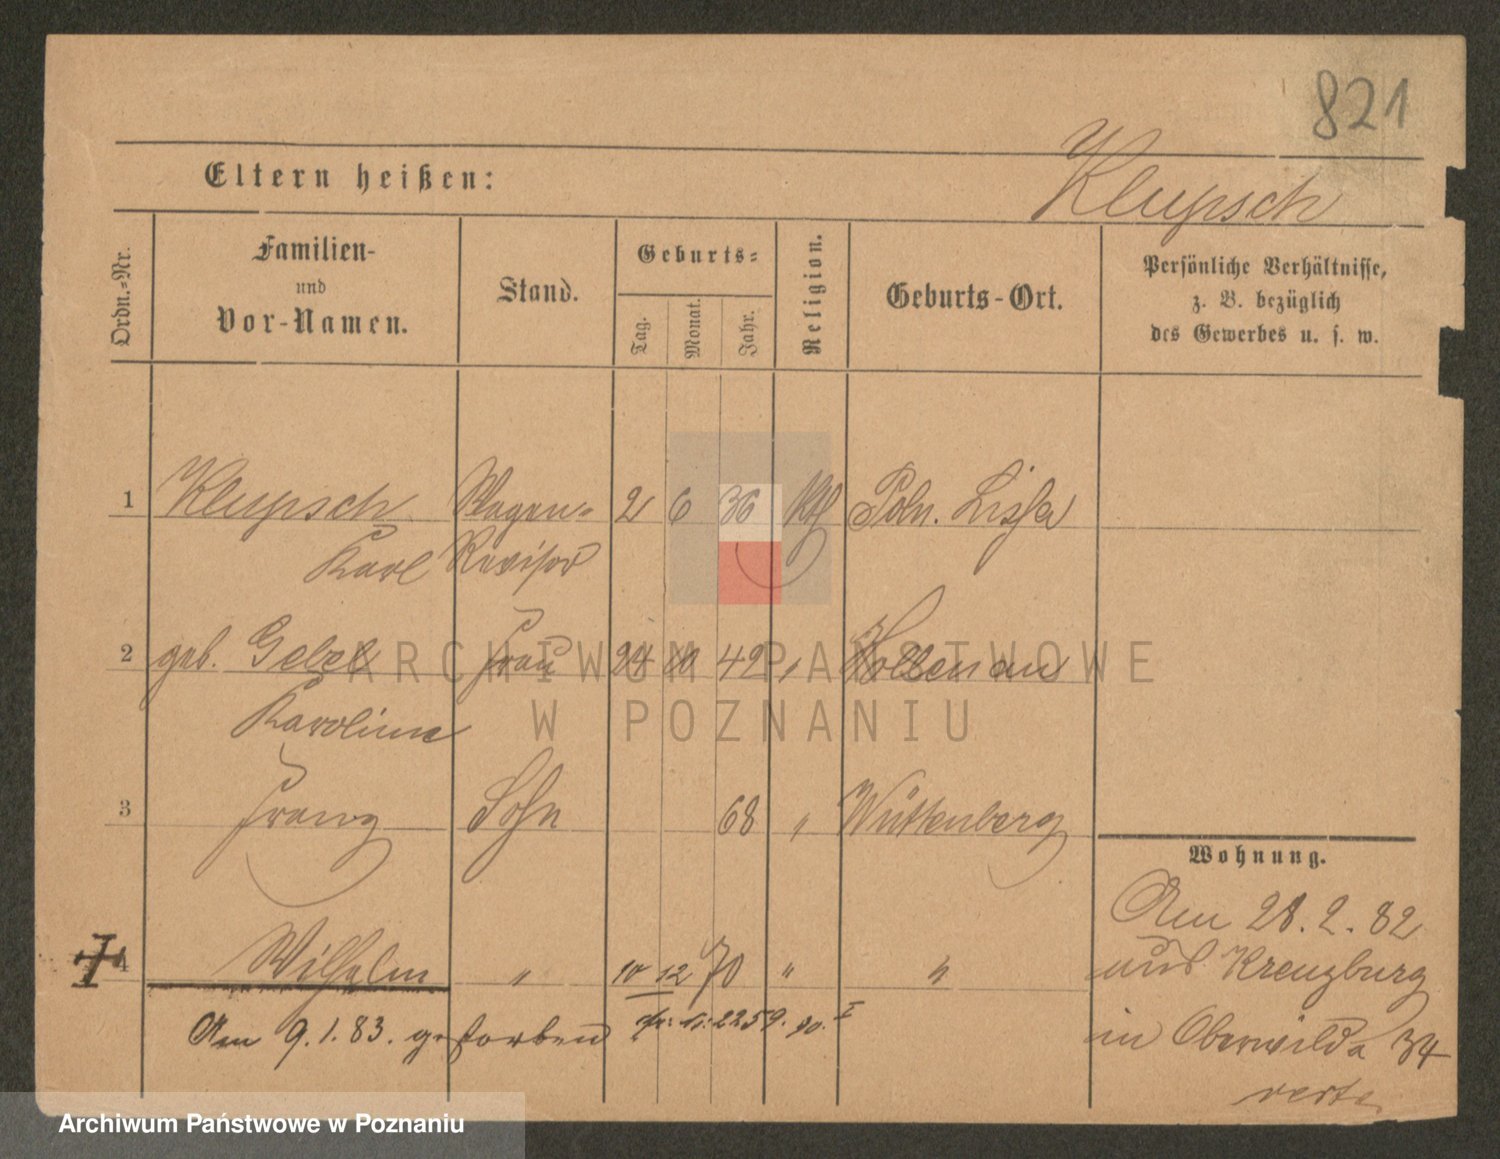 821
Eltern heißen:
Klupsch
Ordn.-Nr.
Familien-
und
Vor-Namen.
Stand.
Geburts-
Tag.
Monat.
Jahr.
Religion.
Geburts-Ort.
Persönliche Verhältnisse,
z. B. bezüglich
des Gewerbes u. s. w.
1 Klupsch Wagen- 2 6 36 kth Poln. Lissa
Karl Revisor
2 geb. Frau 24 10 42 " 
Karoline
3 Franz Sohn 68 " Wüttenberg
Wohnung.
Am 28.2.82
4 Wilhelm " 10 12 70 " "
aus Kreuzburg
Am 9.1.83. gestorben 2259. 90. I
in Oberwilda 34
verte
ARCHIWUM PAŃSTWOWE
W POZNANIU
Archiwum Państwowe w Poznaniu